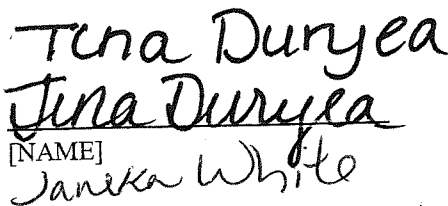 Tina Duryea
Tina Duryea
[NAME]
Janeka White